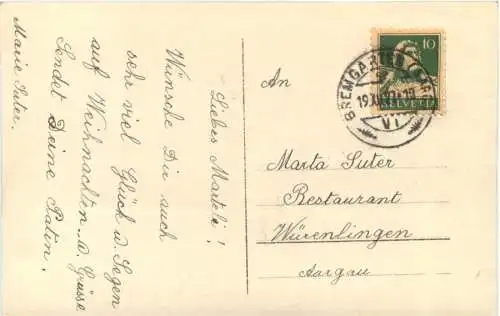 Liebes Marteli!
Wünsche Dir auch
sehr viel Glück u. Segen
auf Weihnachten. u. Grüsse
Sendet Deine Patin.
Marie Suter.
An
Marta Suter
Restaurant
Würenlingen
Aargau
10
HELVETIA
BREMGARTEN
VI